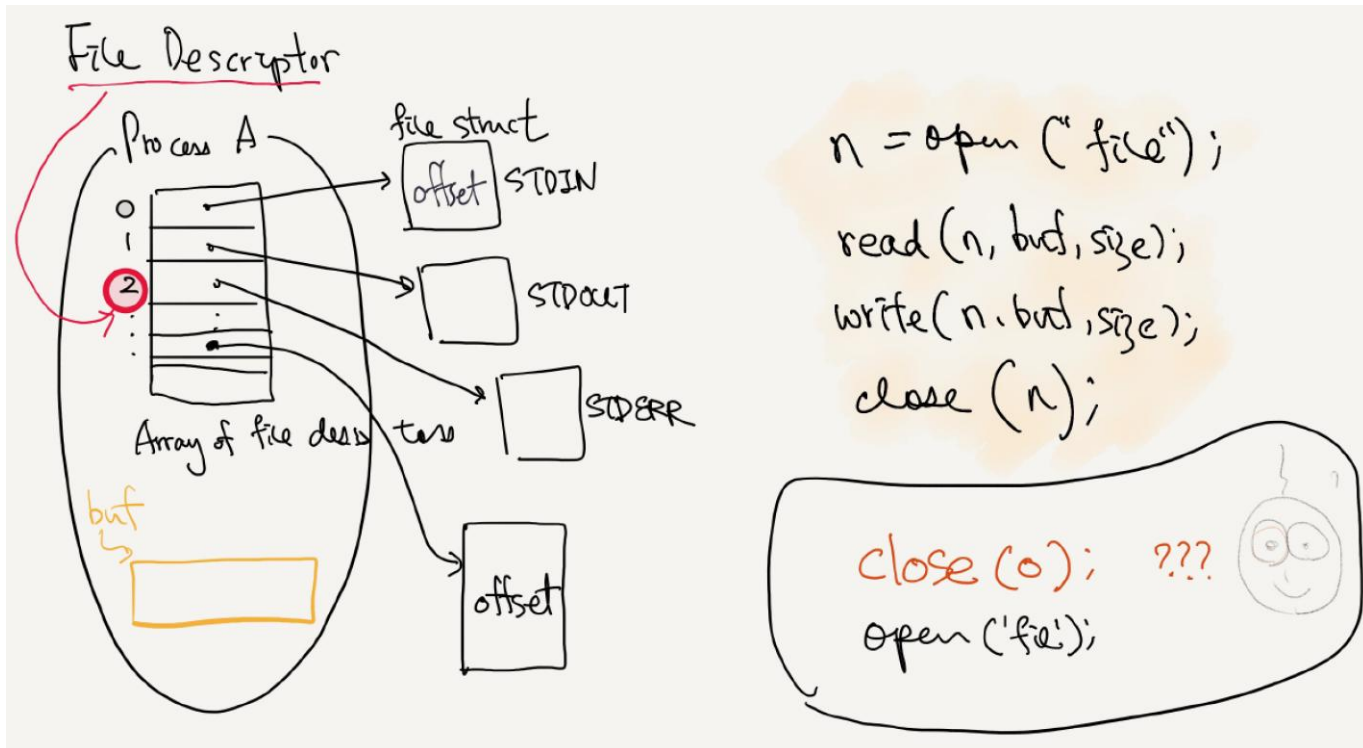 File Descriptor
Process A
file struct
0
1
2
offset
STDIN
STDOUT
STDERR
Array of file
buf
offset
n = open ("file");
read (n, buf, size);
write (n, buf, size);
close (n);
close (0); ???
open ('file');